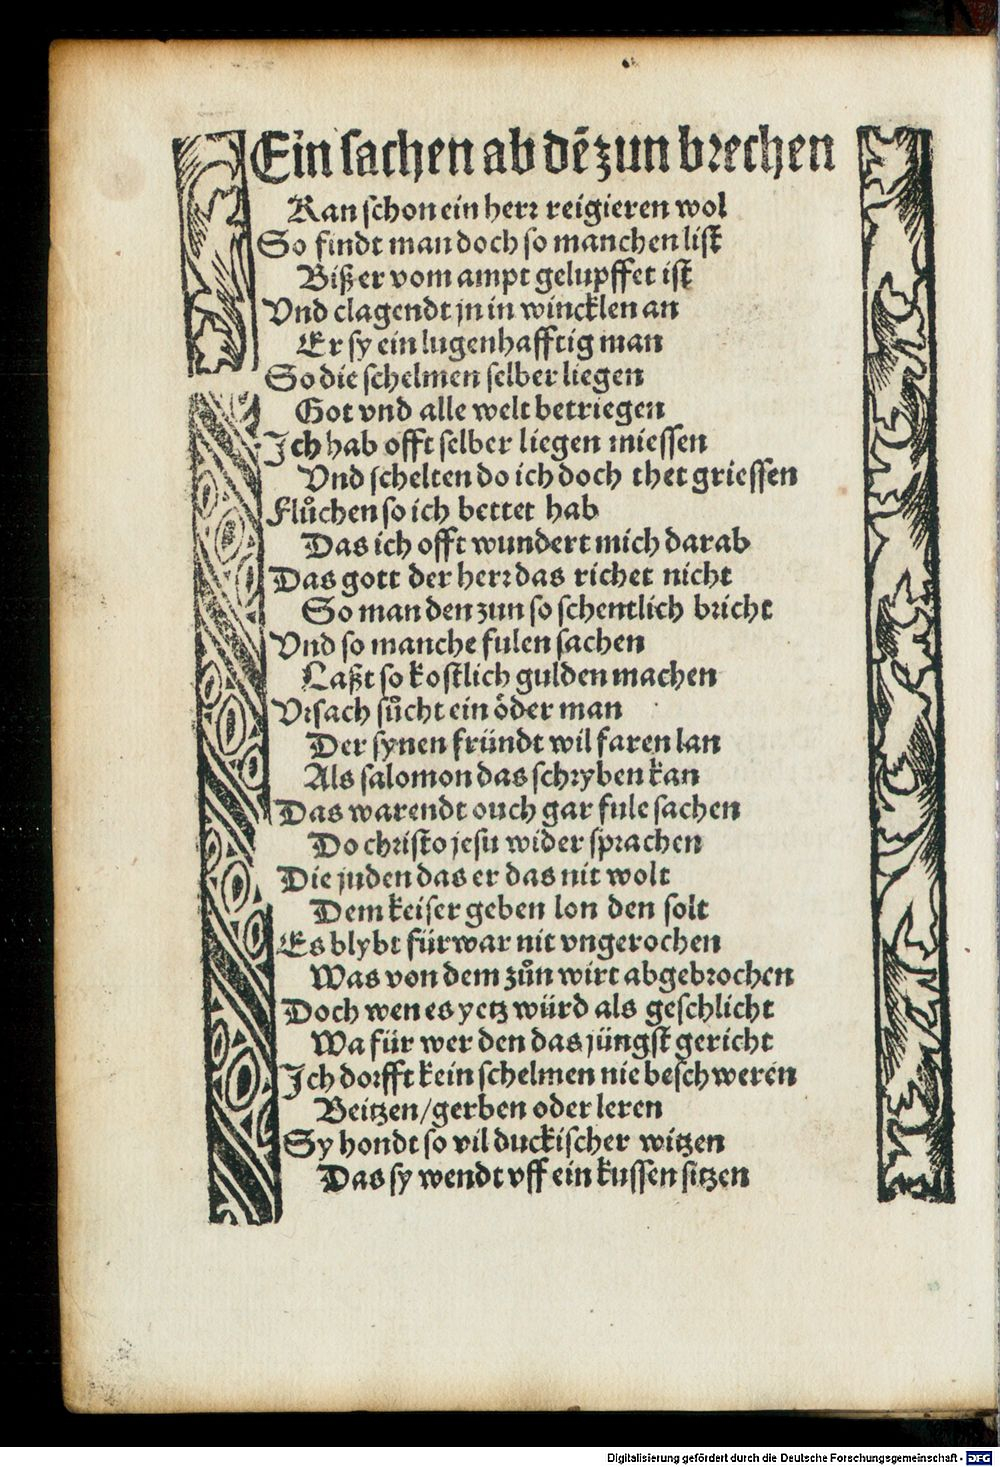 Ein sachen ab dē zun brechen
Kan schon ein herr reigieren wol
So findt man doch so manchen list
Biß er vom ampt gelupffet ist
Vnd clagendt jn in wincklen an
Er sy ein lugenhafftig man
So die schelmen selber liegen
Got vnd alle welt betriegen
Ich hab offt selber liegen miessen
Vnd schelten do ich doch thet griessen
Flůchen so ich bettet hab
Das ich offt wundert mich darab
Das gott der herr das richet nicht
So man den zun so schentlich bricht
Vnd so manche fulen sachen
Laßt so kostlich gulden machen
Vrsach sůcht ein öder man
Der synen fründt wil faren lan
Als salomon das schryben kan
Das warendt ouch gar fule sachen
Do christo jesu wider sprachen
Die juden das er das nit wolt
Dem keiser geben lon den solt
Es blybt fürwar nit vngerochen
Was von dem zůn wirt abgebrochen
Doch wen es yetz würd als geschlicht
Wa für wer den das jüngst gericht
Ich dorfft kein schelmen nie beschweren
Beitzen/gerben oder leren
Sy hondt so vil duckischer witzen
Das sy wendt vff ein kussen sitzen
Digitalisierung gefördert durch die Deutsche Forschungsgemeinschaft - DFG